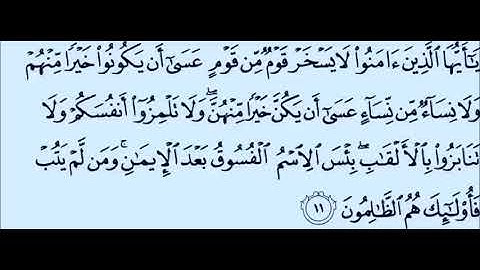 يَٰٓأَيُّهَا ٱلَّذِينَ ءَامَنُوا۟ لَا يَسْخَرْ قَوْمٌ مِّن قَوْمٍ عَسَىٰٓ أَن يَكُونُوا۟ خَيْرًا مِّنْهُمْ
وَلَا نِسَآءٌ مِّن نِّسَآءٍ عَسَىٰٓ أَن يَكُنَّ خَيْرًا مِّنْهُنَّ ۖ وَلَا تَلْمِزُوٓا۟ أَنفُسَكُمْ وَلَا
تَنَابَزُوا۟ بِٱلْأَلْقَٰبِ ۖ بِئْسَ ٱلِٱسْمُ ٱلْفُسُوقُ بَعْدَ ٱلْإِيمَٰنِ ۚ وَمَن لَّمْ يَتُبْ
فَأُو۟لَٰٓئِكَ هُمُ ٱلظَّٰلِمُونَ ١١